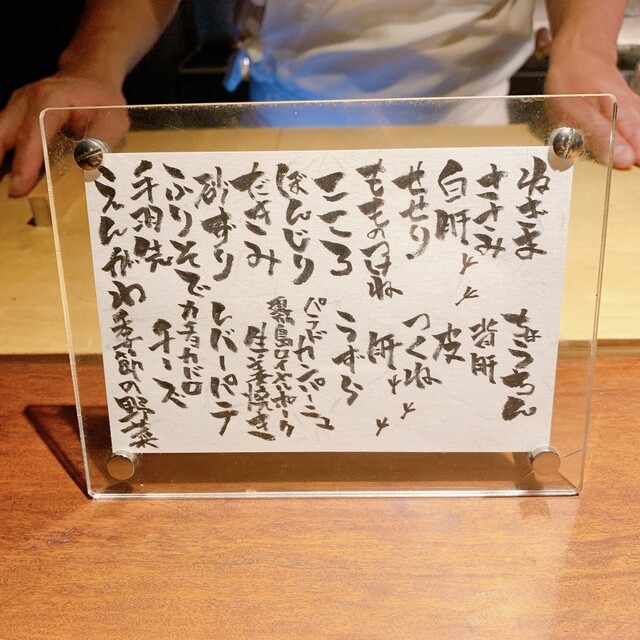 ねぎま
ささみ
白肝
せせり
もものつけね
こころ
ぼんじり
だきみ
砂ずり
ふりそで
手羽先
えんがわ
ちょうちん
背肝
皮
つくね
肝
うずら
パン・ド・カンパーニュ
霧島ロイヤルポーク
生姜焼き
レバーパテ
カチョカバロ
チーズ
季節の野菜